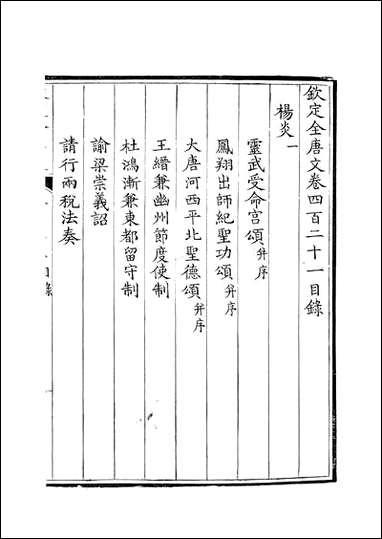 欽定全唐文卷四百二十一目錄
楊炎一
靈武受命宮頌并序
鳳翔出師紀聖功頌并序
大唐河西平北聖德頌并序
王縉兼幽州節度使制
杜鴻漸兼東都留守制
諭梁崇義詔
請行兩稅法奏